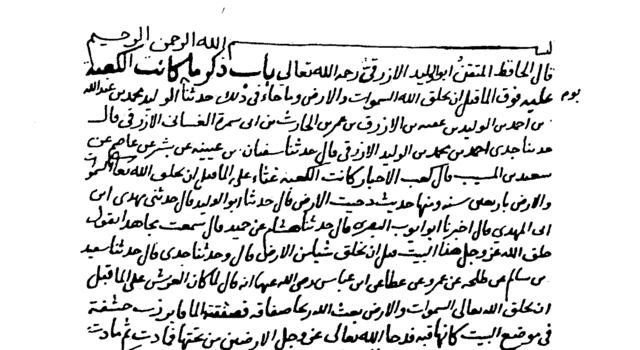 بسم الله الرحمن الرحيم
قال الحافظ المتقن ابو الوليد الازرقي رحمه الله تعالى باب ذكر ما كانت الكعبة
عليه فوق الما قبل ان يخلق الله السموات والارض وما جاء في ذلك حدثنا ابو الوليد محمد بن عبد الله
بن احمد بن الوليد بن عقبة بن الازرق بن عمر بن الحارث بن ابى شمرة الغسانى الازرقى قال
حدثنا جدى احمد بن محمد بن الوليد الازرقى قال حدثنا سفيان بن عيينه عن بشر عن عاصم عن
سعيد بن المسيب قال كعب الاحبار كانت الكعبة غثاء على الما قبل ان يخلق الله تعالى السموات
والارض باربعين سنه ومنها حديث دحيت الارض قال حدثنا ابو الوليد قال حدثنى مهدى ابن
ابى المهدى قال اخبرنا ابو ايوب البصرى قال حدثنا هشام عن حميد قال سمعت مجاهدا يقول
خلق الله عز وجل هذا البيت قبل ان يخلق شيا من الارض قال وحدثنا جدى قال حدثنا سعيد
بن سالم عن طلحة عن عمرو عن عطا عن ابن عباس رضى الله عنهما انه قال لما كان العرش على الما قبل
ان يخلق الله تعالى السموات والارض بعث الله ريحا صفاقه فصفقت الما فابرزت حشفة
فى موضع البيت كانها قبه فدحا الله تعالى عز وجل الارضين من تحتها فمادت ثم مادت